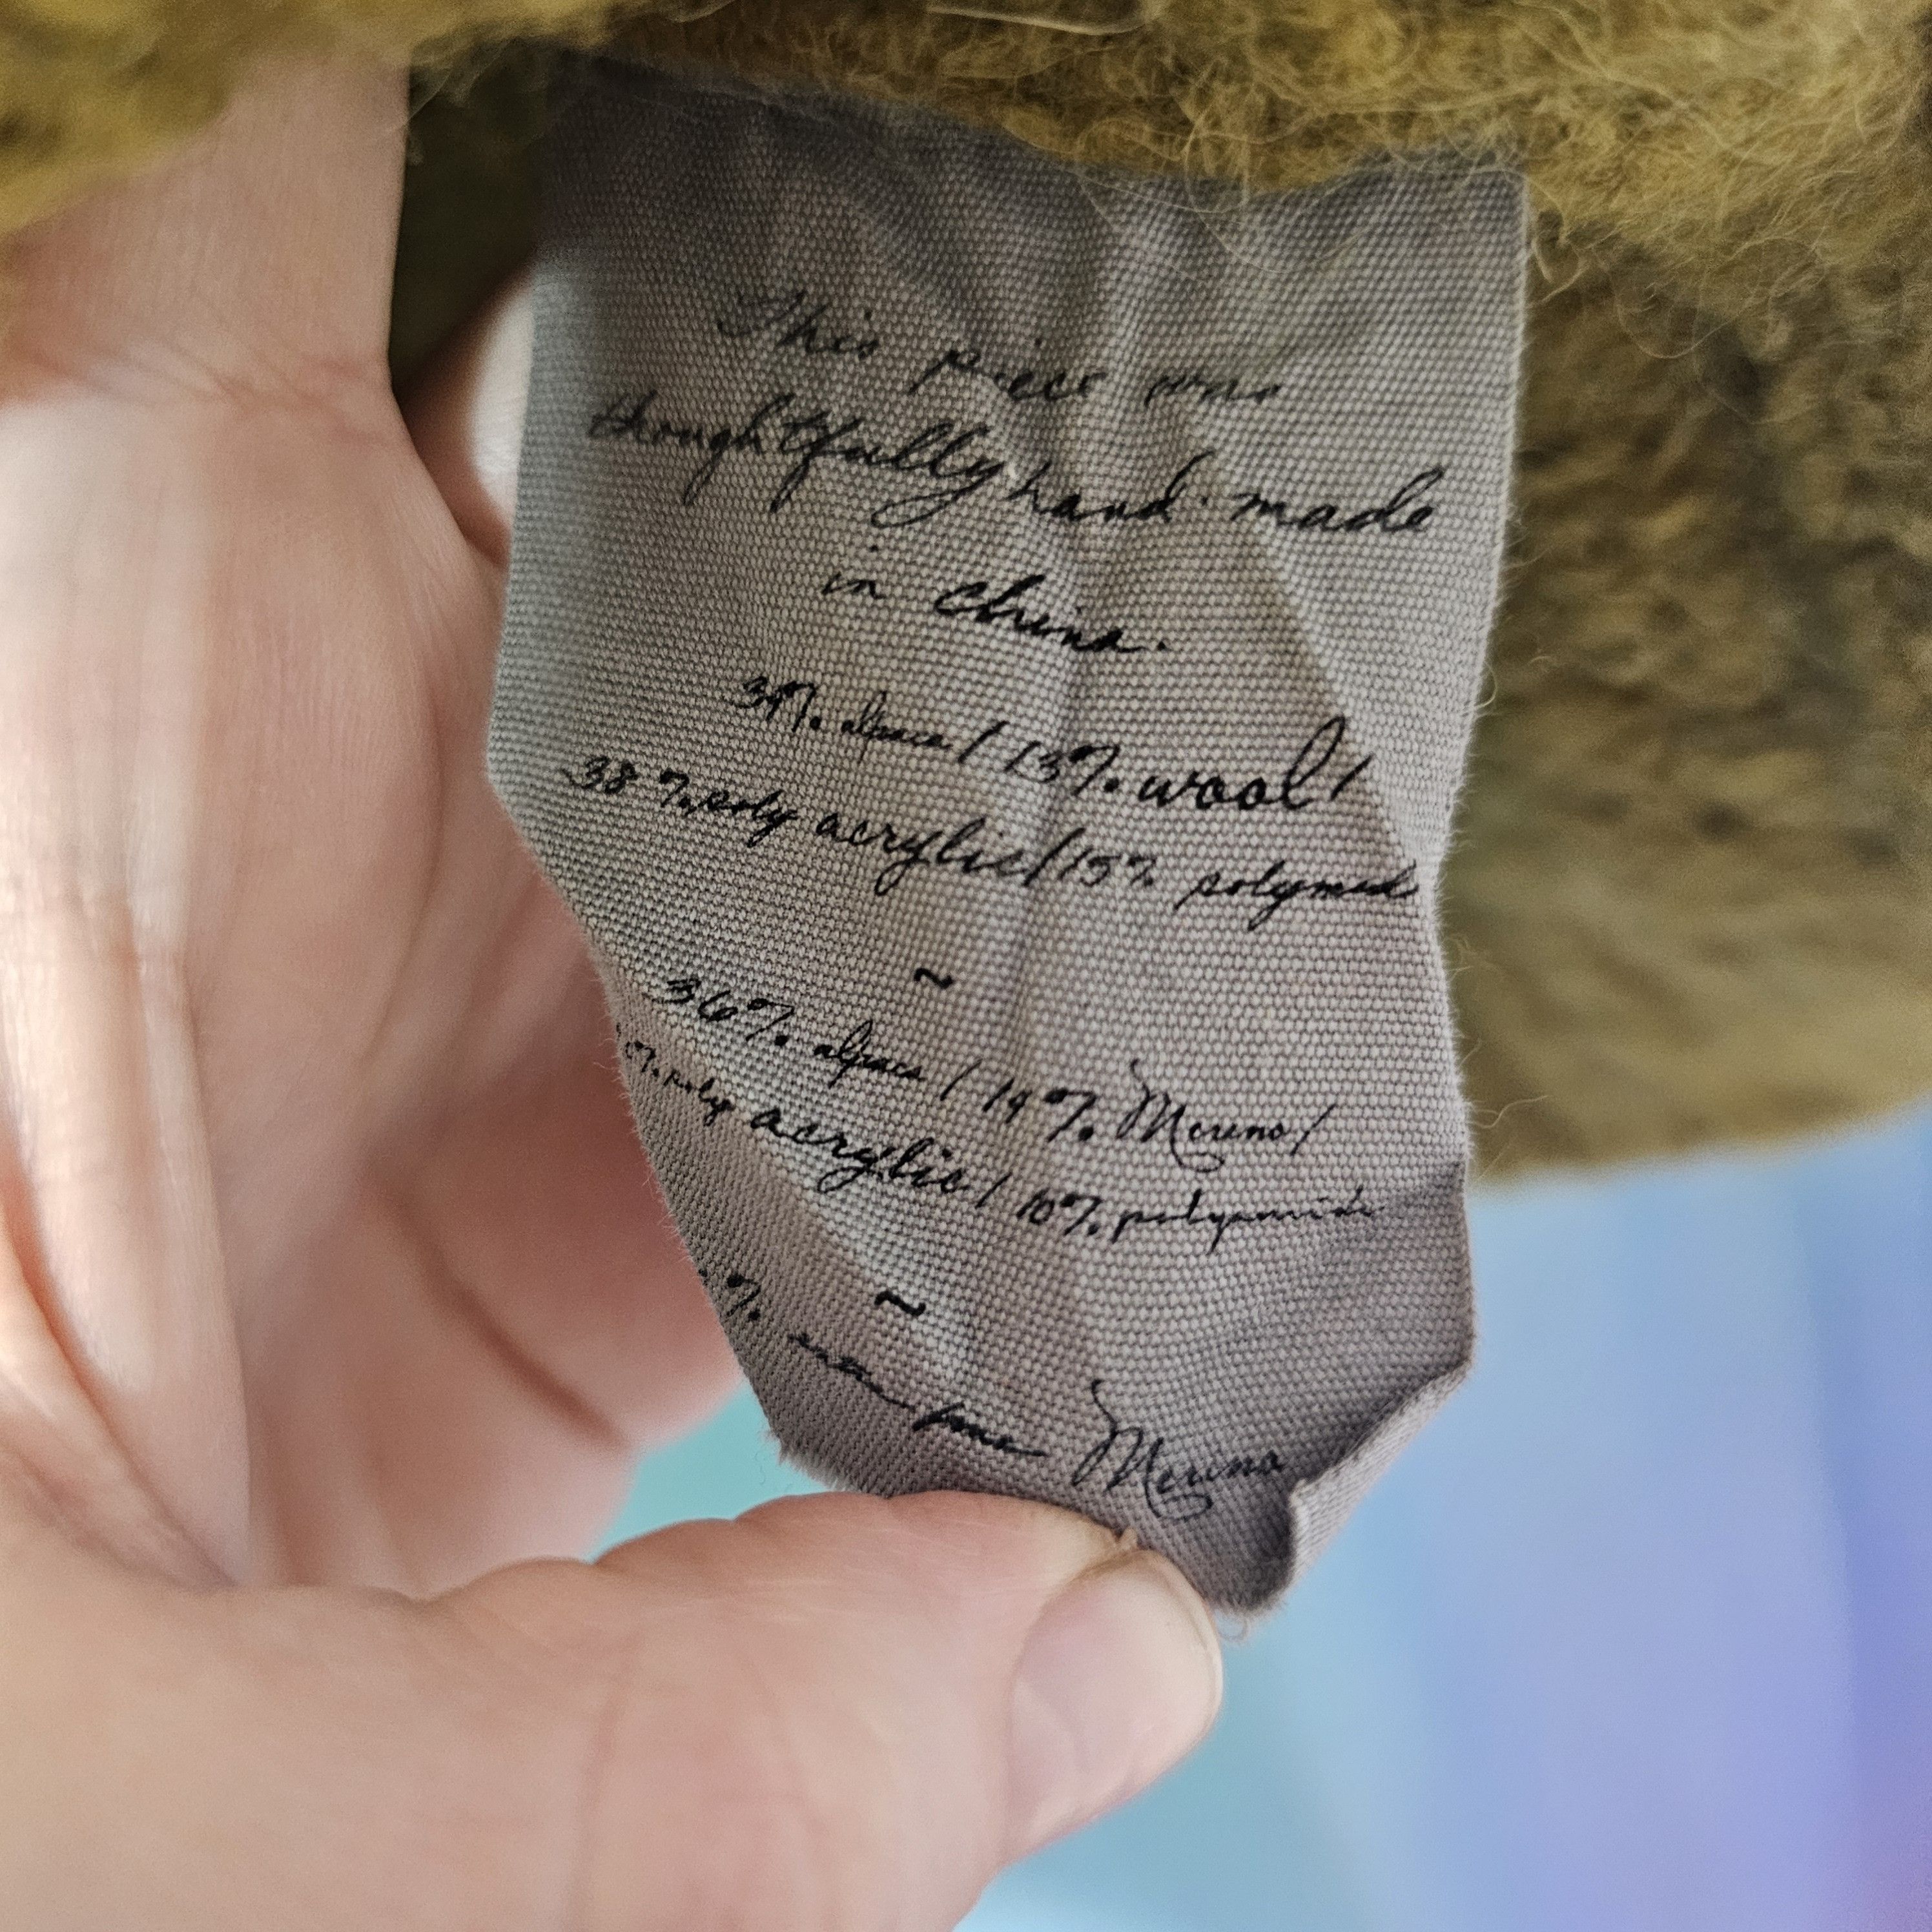 This piece was
thoughtfully hand-made
in China.
34% alpaca / 13% wool /
38% poly acrylic / 15% polymid
~
36% alpaca / 14% Merino /
% poly acrylic / 10% polyamide
~
% extra fine Merino